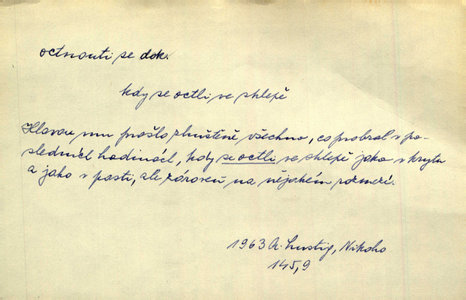 octnouti se dok.
kdy se octli ve sklepě
Hlavou mu prošlo zhuštěně všechno, co probral v po-
sledních hodinách, kdy se octli ve sklepě jako v krytu
a jako v pasti, ale zároveň na nějakém rozmezí.
1963 A. Lustig, Nikoho
145,9